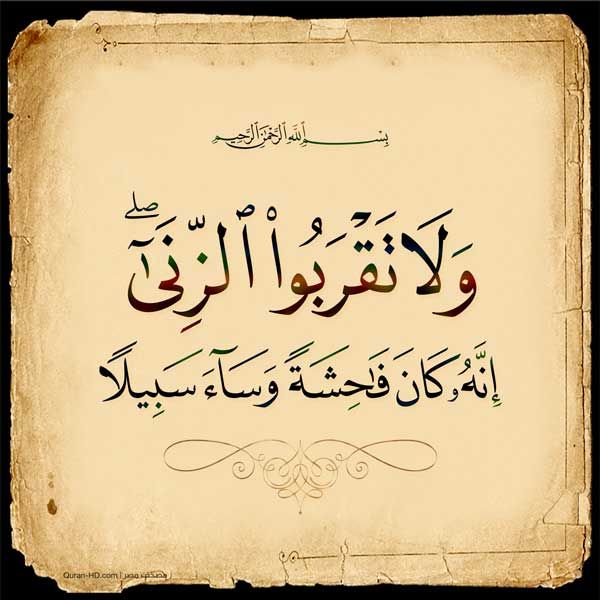 بِسْمِ ٱللَّهِ ٱلرَّحْمَٰنِ ٱلرَّحِيمِ
وَلَا تَقْرَبُوا۟ ٱلزِّنَىٰٓ ۖ
إِنَّهُۥ كَانَ فَـٰحِشَةً وَسَآءَ سَبِيلًا
Quran-HD.com | مصحف مصر